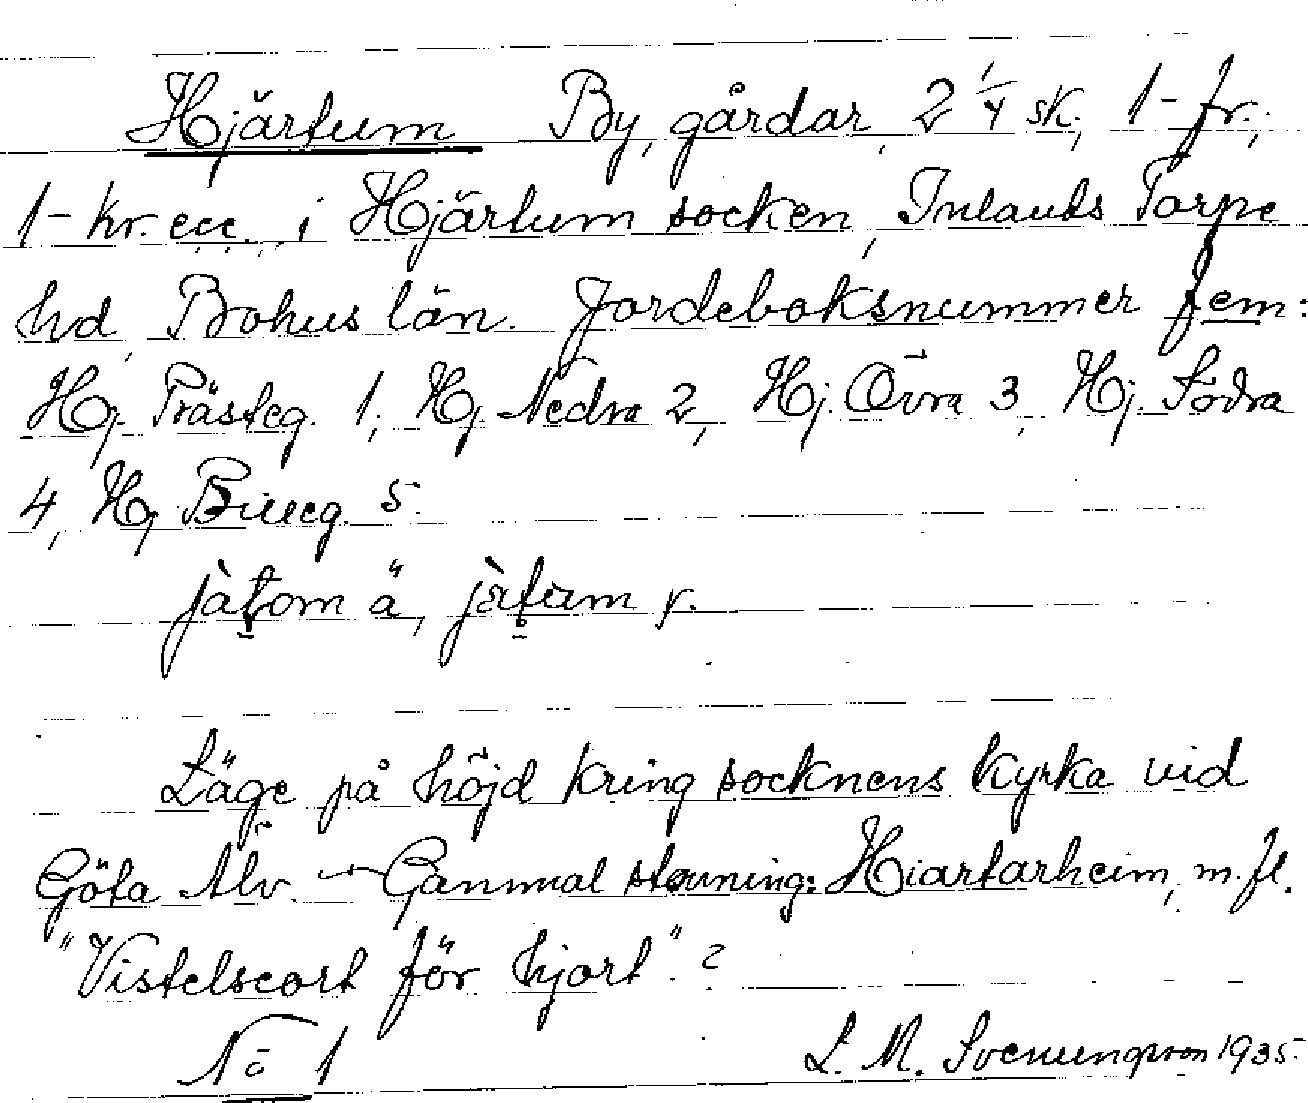 Hjärtum By, gårdar, 2 1/4 sk, 1- fr.,
1- kr. ecc. i Hjärtum socken, Inlands Torpe
hd, Bohus län. Jordeboksnummer fem:
Hj. Prästeg. 1, Hj. Nedra 2, Hj. Övra 3, Hj. Södra
4, Hj. Billeg. 5.
jàtom ä, y.
Läge på höjd kring socknens kyrka vid
Göta Älv. — Gammal stavning: Hiartarheim, m. fl.
"Vistelseort för hjort". ?
No 1 L. M. Svenungsson 1935.